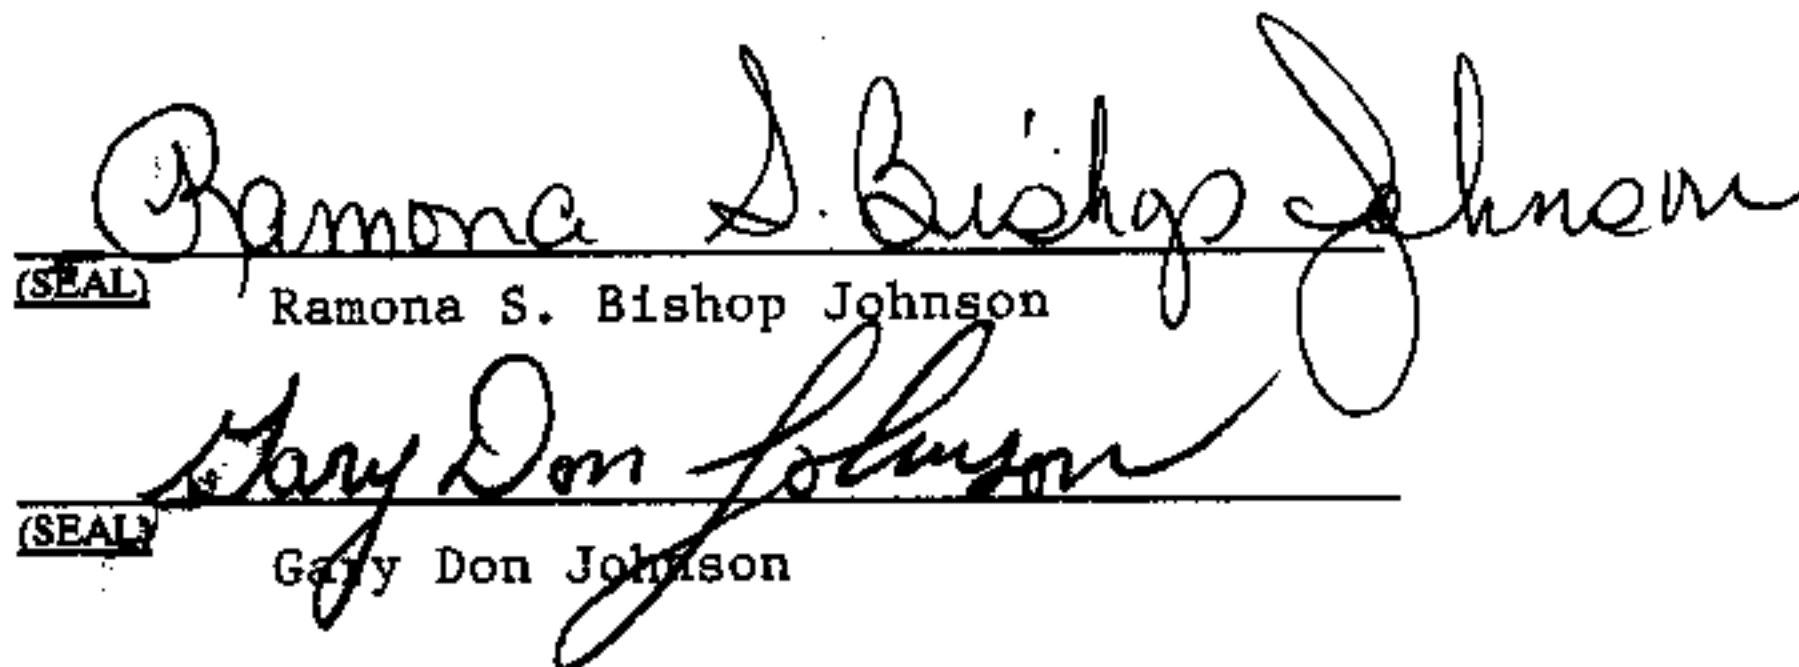 Ramona S. Bishop Johnson
(SEAL)
Ramona S. Bishop Johnson
Gary Don Johnson
(SEAL)
Gary Don Johnson